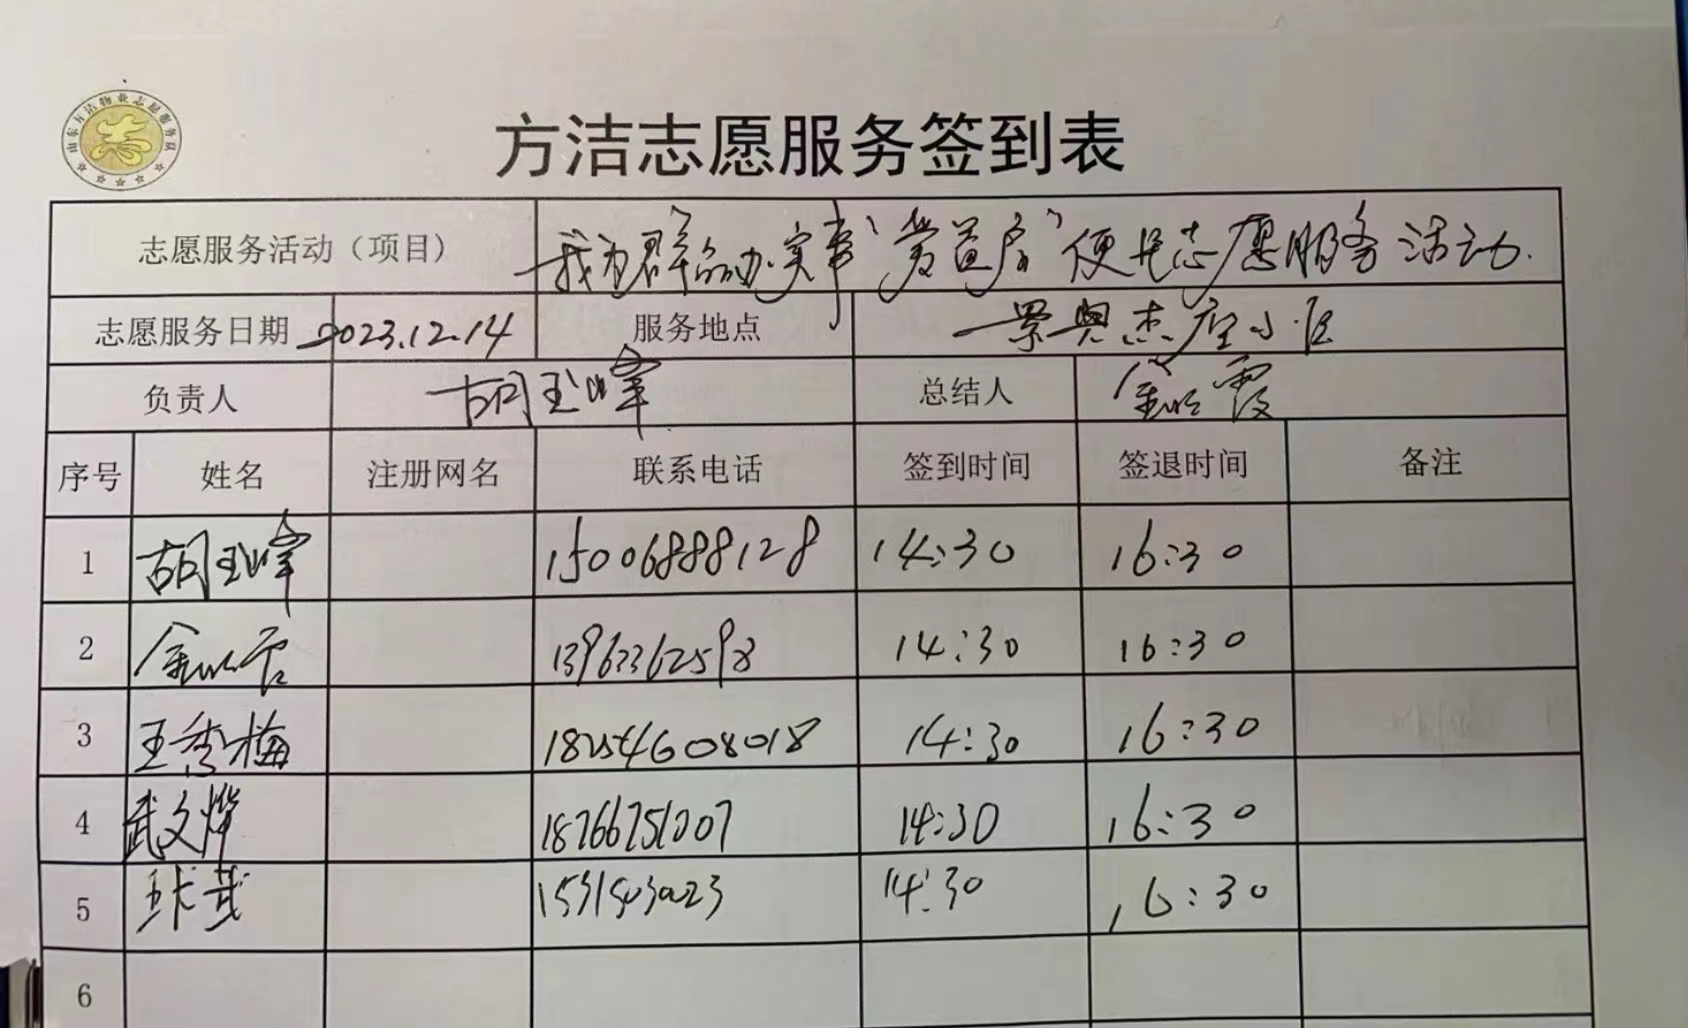 山东方洁物业志愿服务队
方洁志愿服务签到表
志愿服务活动（项目） 我为群众办实事"爱道存"便民志愿服务活动.
志愿服务日期 2023.12.14 服务地点 景典杰座小区
负责人 胡玉峰 总结人 霞
序号 姓名 注册网名 联系电话 签到时间 签退时间 备注
1 胡玉峰 15006888128 14:30 16:30
2 13963362598 14:30 16:30
3 王秀梅 18254608018 14:30 16:30
4 武文烨 18766751007 14:30 16:30
5 14:30 16:30
6